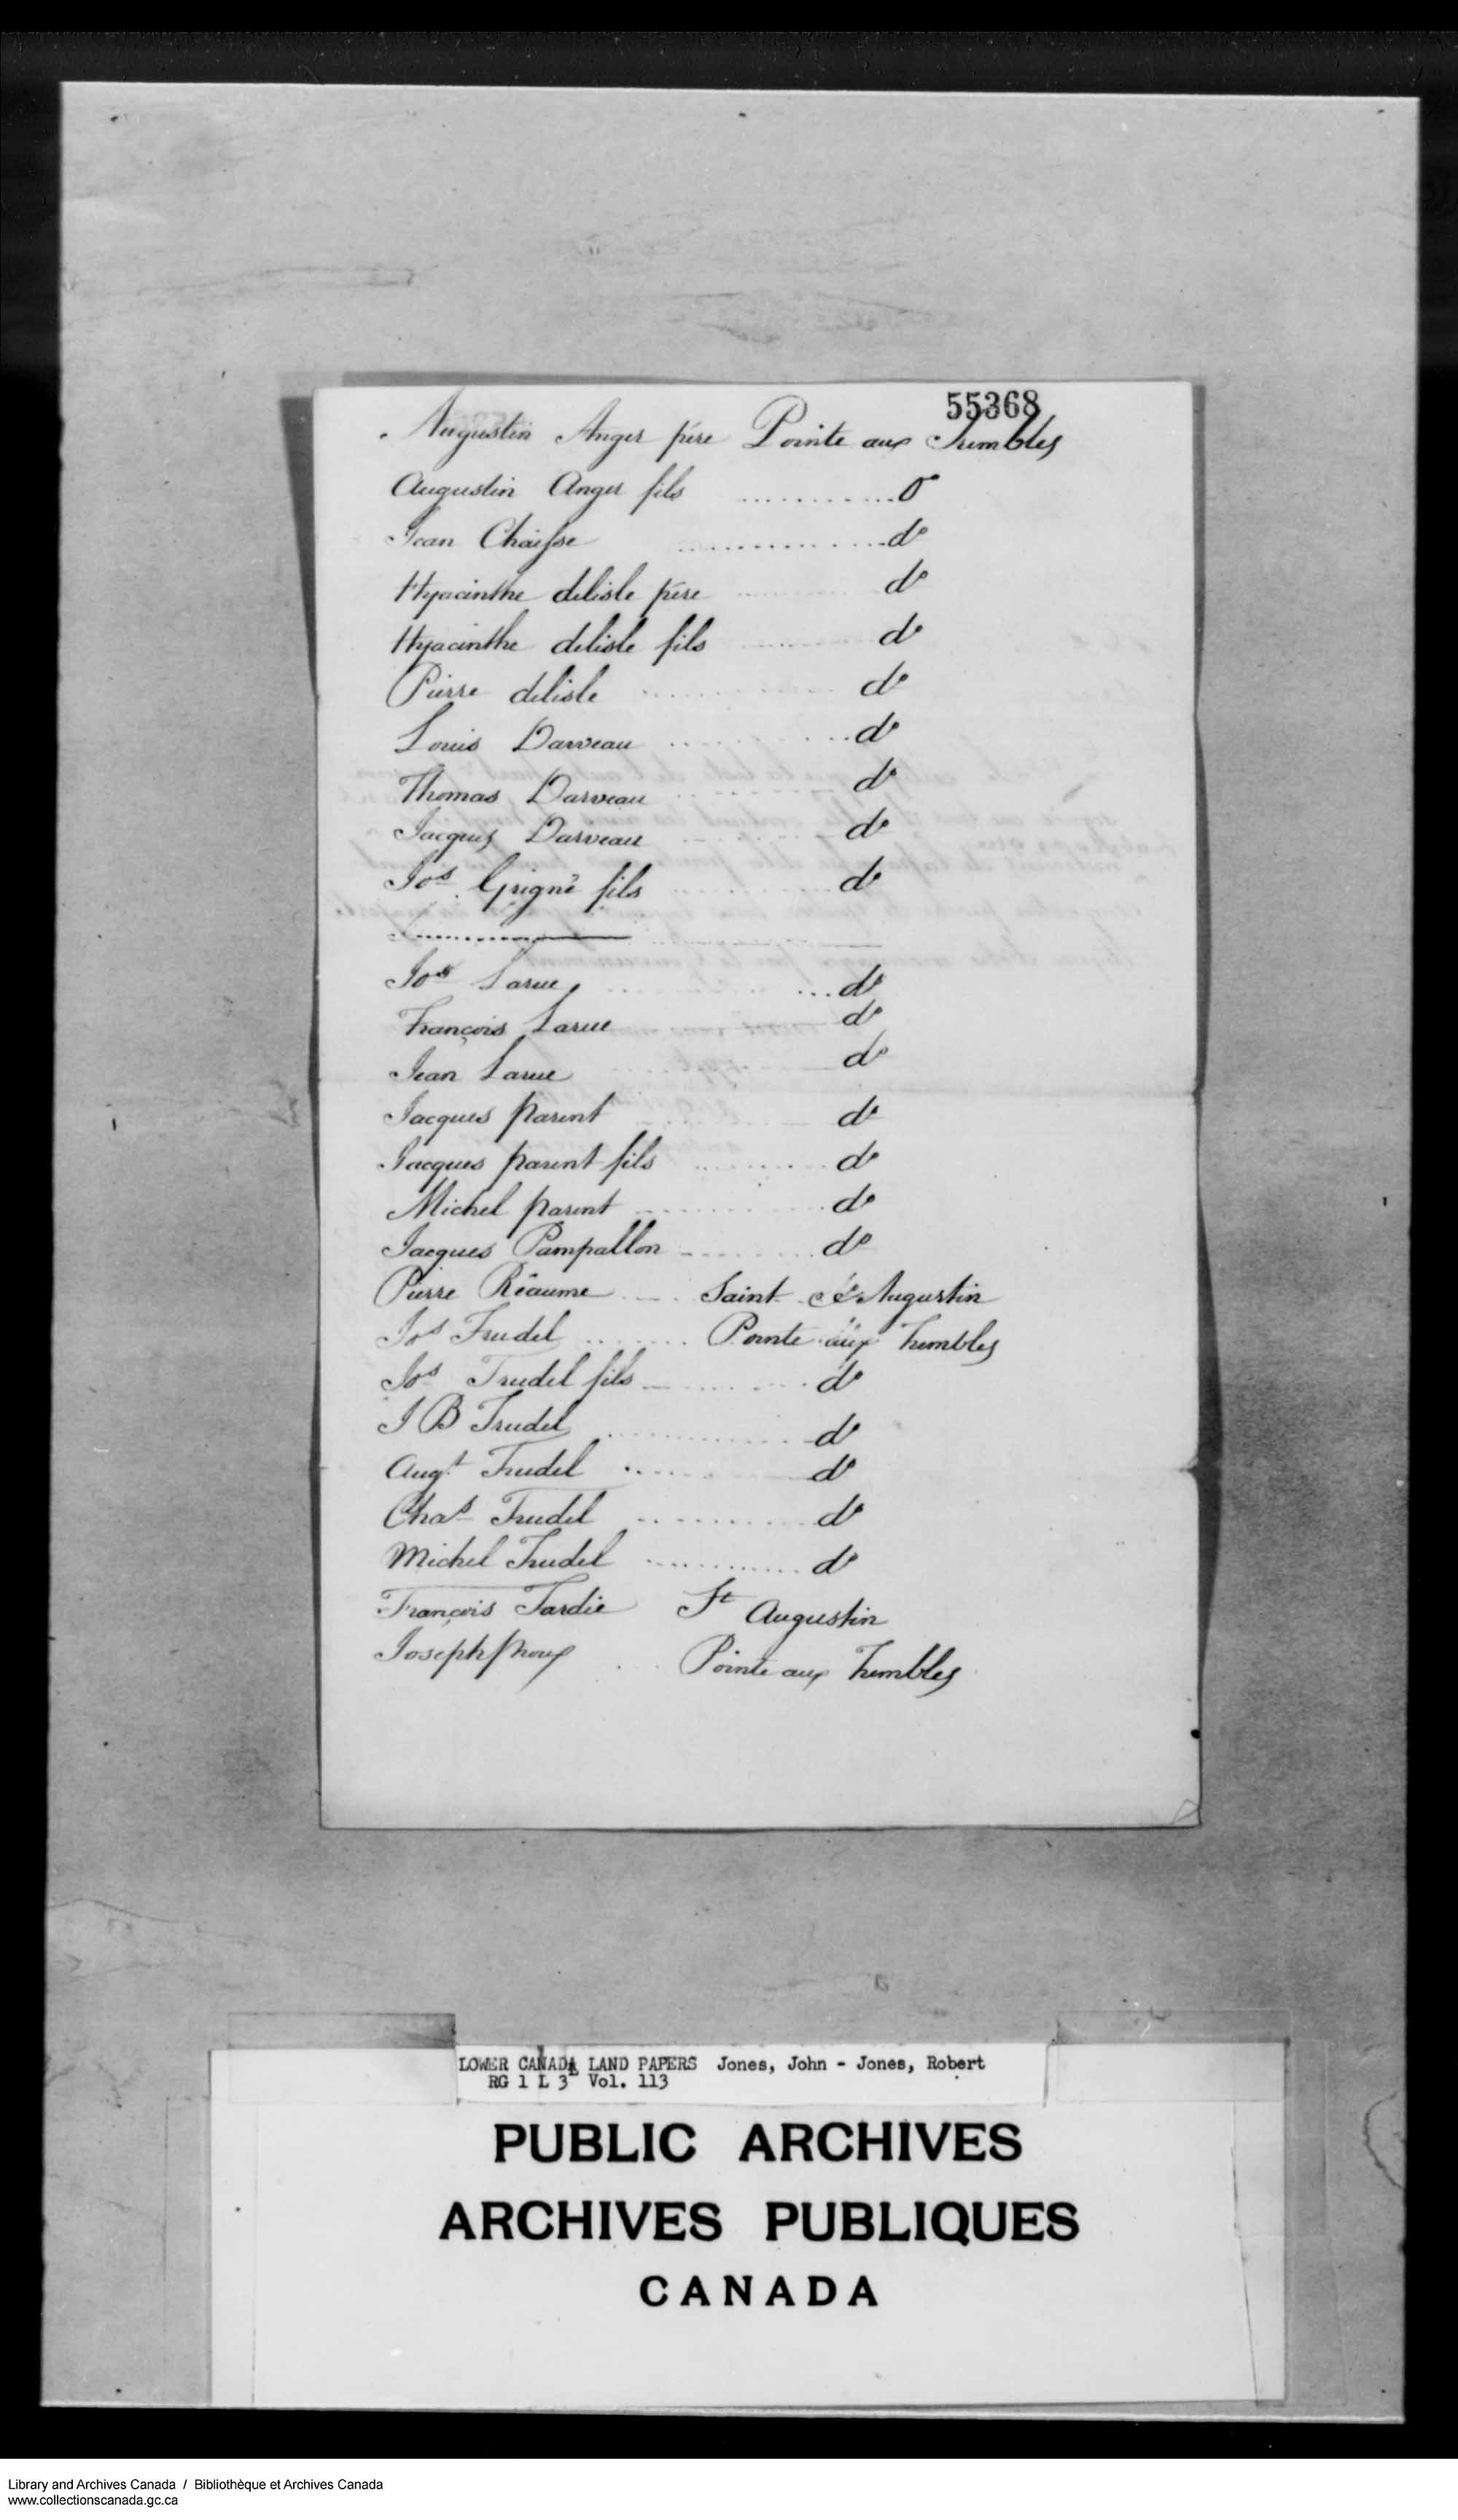 55368
Augustin Anger pére Pointe aux Trembles
Augustin Anger fils ............ do
Jean Chaisse ............... do
Hyacinthe delisle pére ............ do
Hyacinthe delisle fils ......... do
Pierre delisle ............ do
Louis Darveau ............ do
Thomas Darveau ......... do
Jacques Darveau ......... do
Jos Grigné fils ......... do
Jos Larue ......... do
François Larue do
Jean Larue ...... do
Jacques parent ...... do
Jacques parent fils ......... do
Michel parent ............ do
Jacques Pampallon ......... do
Pierre Réaume ...... Saint Augustin
Jos Trudel ......... Pointe aux Trembles
Jos Trudel fils ......... do
J B Trudel ............ do
Augt Trudel ...... do
Chas Trudel ............ do
Michel Trudel ............ do
François Tardie St Augustin
Joseph proux ... Pointe aux Trembles
LOWER CANADA LAND PAPERS Jones, John - Jones, Robert
RG 1 L 3 Vol. 113
PUBLIC ARCHIVES
ARCHIVES PUBLIQUES
CANADA
Library and Archives Canada / Bibliothèque et Archives Canada
www.collectionscanada.gc.ca